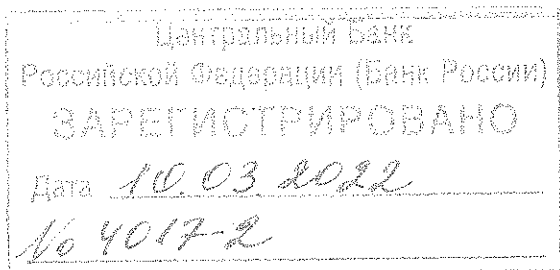 Центральный Банк
Российской Федерации (Банк России)
ЗАРЕГИСТРИРОВАНО
Дата 10.03 2022
№ 4017-2